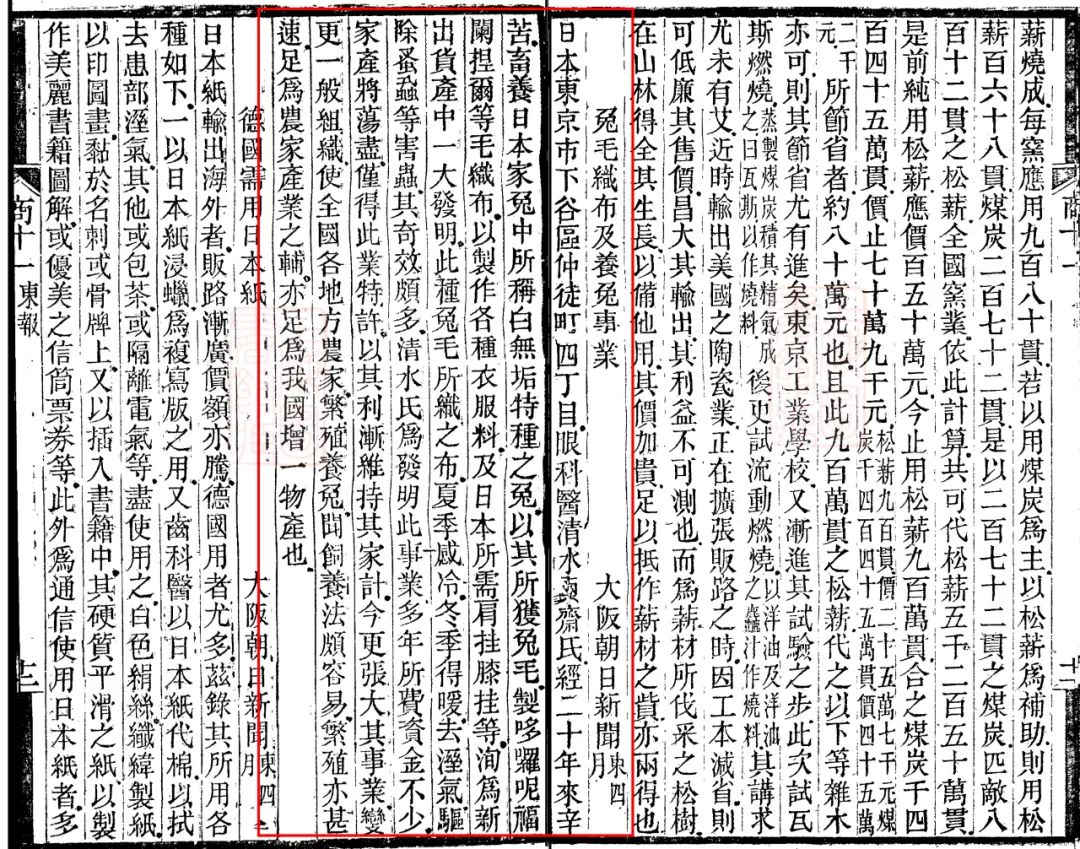 薪燒成每窯應用九百八十貫若以用煤炭爲主以松薪爲補助則用松
薪百六十八貫煤炭二百七十二貫是以二百七十二貫之煤炭匹敵八
百十二貫之松薪全國窯業依此計算共可代松薪五千二百五十萬貫
是前純用松薪應價百五十萬元今止用松薪九百萬貫合之煤炭千四
百四十五萬貫價止七十萬九千元松薪九百貫價二十五萬七千元煤炭千四百四十五萬貫價四十五萬
二千元所節省者約八十萬元也且此九百萬貫之松薪代之以下等雜木
亦可則其節省尤有進矣東京工業學校又漸進其試驗之步此次試瓦
斯燃燒蒸製煤炭積其精氣成之曰瓦斯以作燒料後更試流動燃燒以洋油及洋油之麤汁作燒料其講求
尤未有艾近時輸出美國之陶瓷業正在擴張販路之時因工本減省則
可低廉其售價昌大其輸出其利益不可測也而爲薪材所伐采之松樹
在山林得全其生長以備他用其價加貴足以抵作薪材之貲亦兩得也
兔毛織布及養兔事業 大阪朝日新聞東四月
日本東京市下谷區仲徒町四丁目眼科醫清水齋氏經二十年來辛
苦畜養日本家兔中所稱白無垢特種之兔以其所獲兔毛製哆囉呢福
闌捏爾等毛織布以製作各種衣服料及日本所需肩挂膝挂等洵爲新
出貨產中一大發明此種兔毛所織之布夏季感冷冬季得暖去溼氣驅
除蚤蝨等害蟲其奇效頗多清水氏爲發明此事業多年所費資金不少
家產將蕩盡僅得此業特許以其利漸維持其家計今更張大其事業變
更一般組織使全國各地方農家繁殖養兔聞飼養法頗容易繁殖亦甚
速足爲農家產業之輔亦足爲我國增一物產也
德國需用日本紙 大阪朝日新聞東四月
日本紙輸出海外者販路漸廣價額亦騰德國用者尤多茲錄其所用各
種如下一以日本紙浸蠟爲複寫版之用又齒科醫以日本紙代棉以拭
去患部溼氣其他或包茶或隔離電氣等盡使用之白色絹絲織緯製紙
以印圖畫黏於名刺或骨牌上又以插入書籍中其硬質平滑之紙以製
作美麗書籍圖解或優美之信筒票券等此外爲通信使用日本紙者多
商十一
十二
商十一 東報
十二